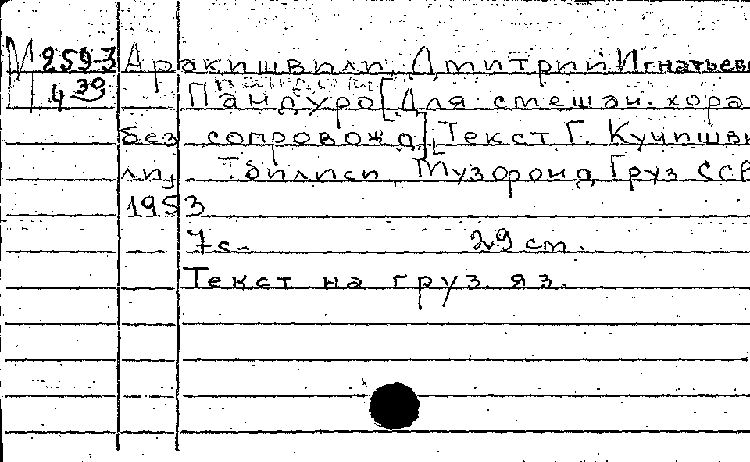 М 2593 Аракишвили, Дмитрий Игнатьеви
4 39 Пандуро [Для смешан. хора
без сопровожд.] [Текст Г. Кучишви
ли]. Тбилиси, Музфонд Груз ССР
1953
7 с. 29 см.
Текст на груз. яз.